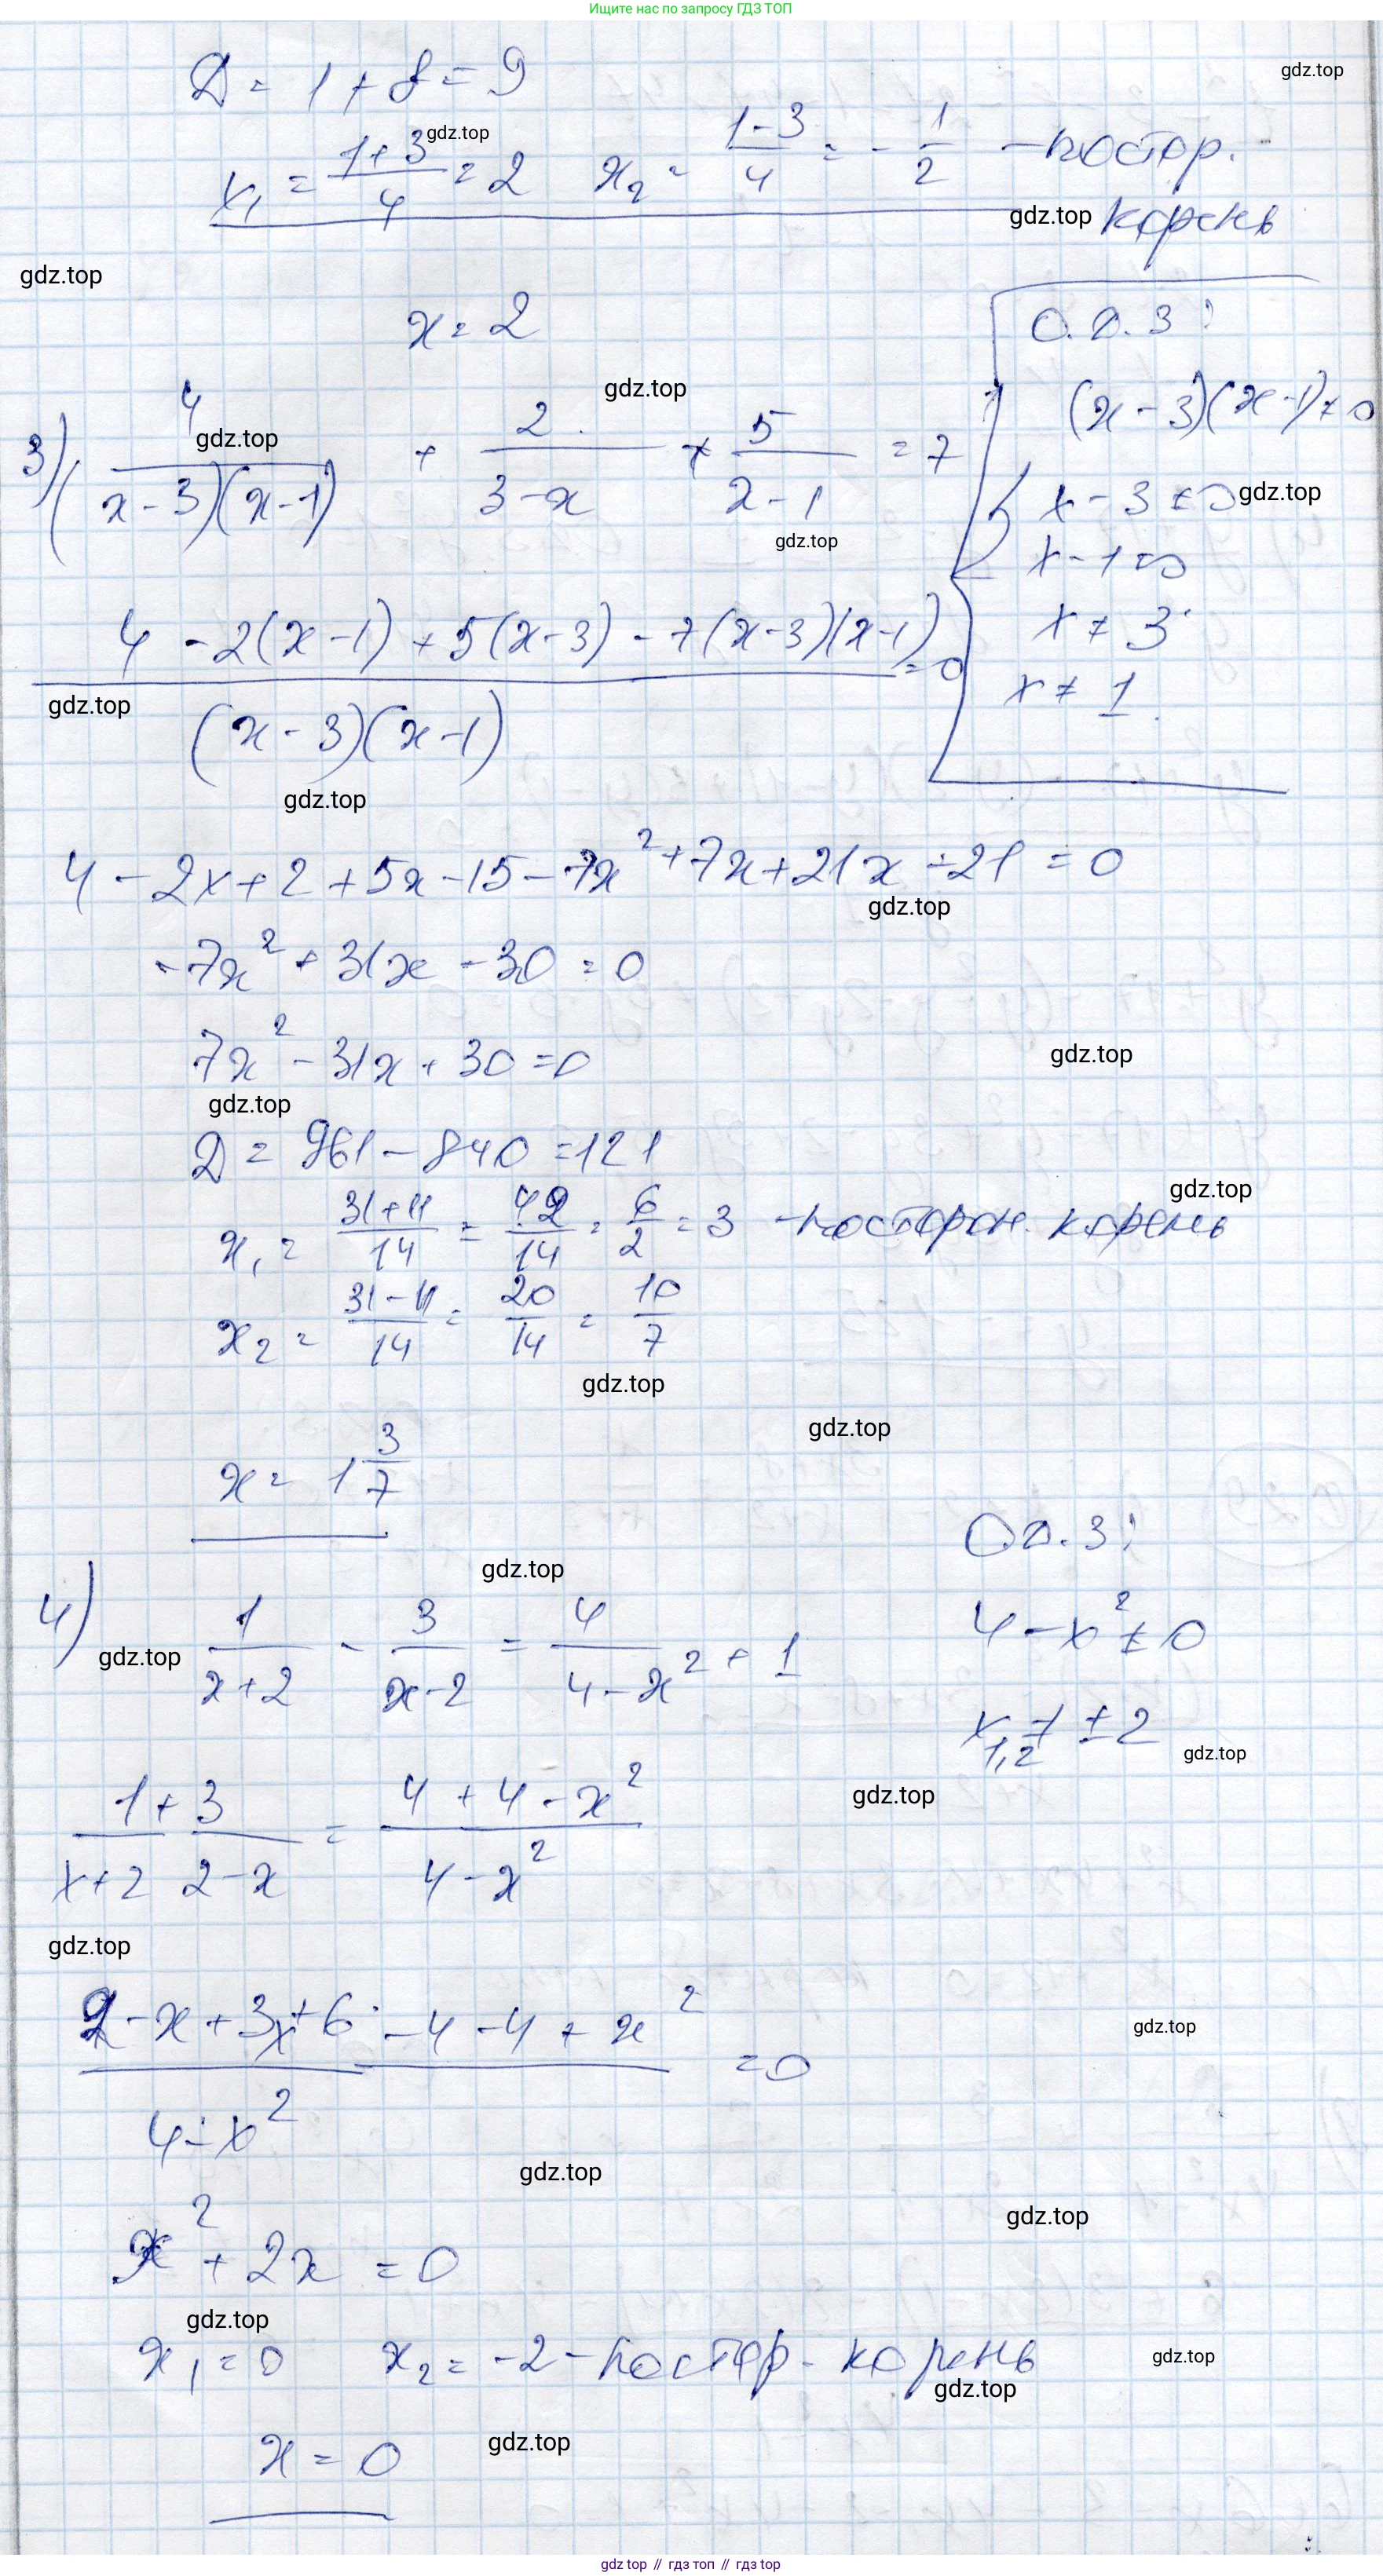 Ищите нас по запросу ГДЗ ТОП
D = 1 + 8 = 9
gdz.top
x₁ = (1+3)/4 = 2   x₂ = (1-3)/4 = -1/2 - постор.
gdz.top
корень
gdz.top
gdz.top
x = 2
О.Д.З:
gdz.top
(x-3)(x-1) ≠ 0
3) 4/((x-3)(x-1)) + 2/(3-x) + 5/(x-1) = 7
gdz.top
x - 3 ≠ 0
gdz.top
x - 1 ≠ 0
gdz.top
x ≠ 3
x ≠ 1
(4 - 2(x-1) + 5(x-3) - 7(x-3)(x-1))/((x-3)(x-1)) = 0
gdz.top
gdz.top
4 - 2x + 2 + 5x - 15 - 7x² + 7x + 21x - 21 = 0
gdz.top
-7x² + 31x - 30 = 0
7x² - 31x + 30 = 0
gdz.top
gdz.top
D = 961 - 840 = 121
gdz.top
x₁ = (31+11)/14 = 42/14 = 6/2 = 3 - посторон. корень
x₂ = (31-11)/14 = 20/14 = 10/7
gdz.top
gdz.top
x = 1 3/7
О.Д.З:
gdz.top
4 - x² ≠ 0
4) 1/(x+2) - 3/(x-2) = 4/(4-x²) + 1
gdz.top
x₁,₂ ≠ ±2
gdz.top
gdz.top
1/(x+2) + 3/(2-x) = (4+4-x²)/(4-x²)
gdz.top
(2-x+3x+6-4-4+x²)/(4-x²) = 0
gdz.top
gdz.top
gdz.top
x² + 2x = 0
gdz.top
x₁ = 0   x₂ = -2 - постор. корень
gdz.top
gdz.top
x = 0
gdz.top
gdz top // гдз топ // gdz top